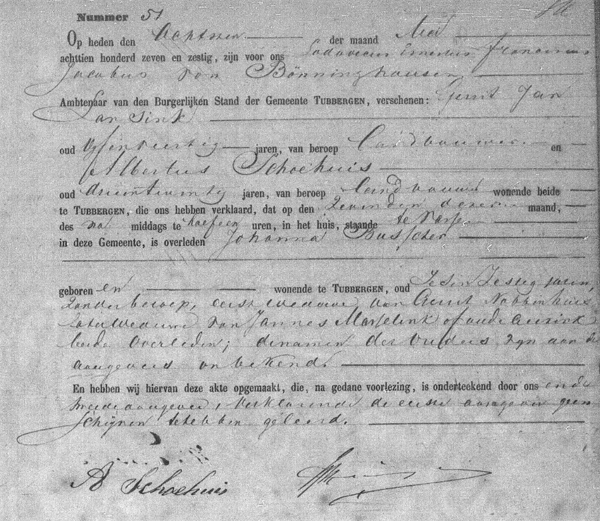 Nummer 51
Op heden den Achtsten der maand Mei
achtien honderd zeven en zestig, zijn voor ons Lodovicus Ernestus Franciscus
Jacobus von Bönninghausen
Ambtenaar van den Burgerlijken Stand der Gemeente Tubbergen, verschenen: Gerrit Jan
Lansink
oud jaren, van beroep Landbouwer en
Albertus Schoehuis
oud jaren, van beroep Landbouwer wonende beide
te Tubbergen, die ons hebben verklaard, dat op den Zevenden dezer maand,
des na middags te uren, in het huis, staande te
in deze Gemeente, is overleden Johanna Busscher
geboren en wonende te Tubbergen, oud Zes en Zestig jaren,
zonder beroep, eerst weduwe van Gerrit
laatst weduwe van Jannes of
beide overleden; de namen der Ouders zijn aan de
aangevers onbekend.
En hebben wij hiervan deze akte opgemaakt, die, na gedane voorlezing, is onderteekend door ons en den
tweede aangever, verklarende de eerste aangever geen
schrijven te hebben geleerd.
A Schoehuis